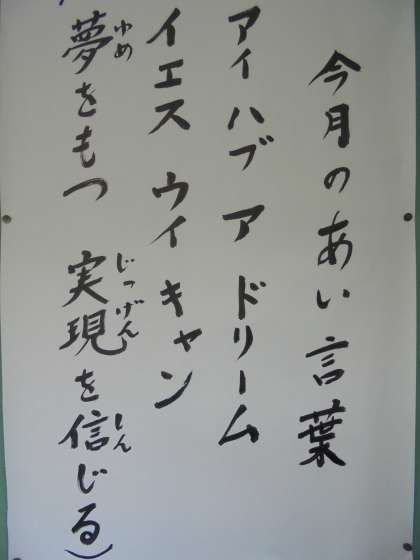 今月のあい言葉
アイ ハブ ア ドリーム
イエス ウイ キャン
夢をもつ 実現を信じる)
ゆめ
じつげん
しん